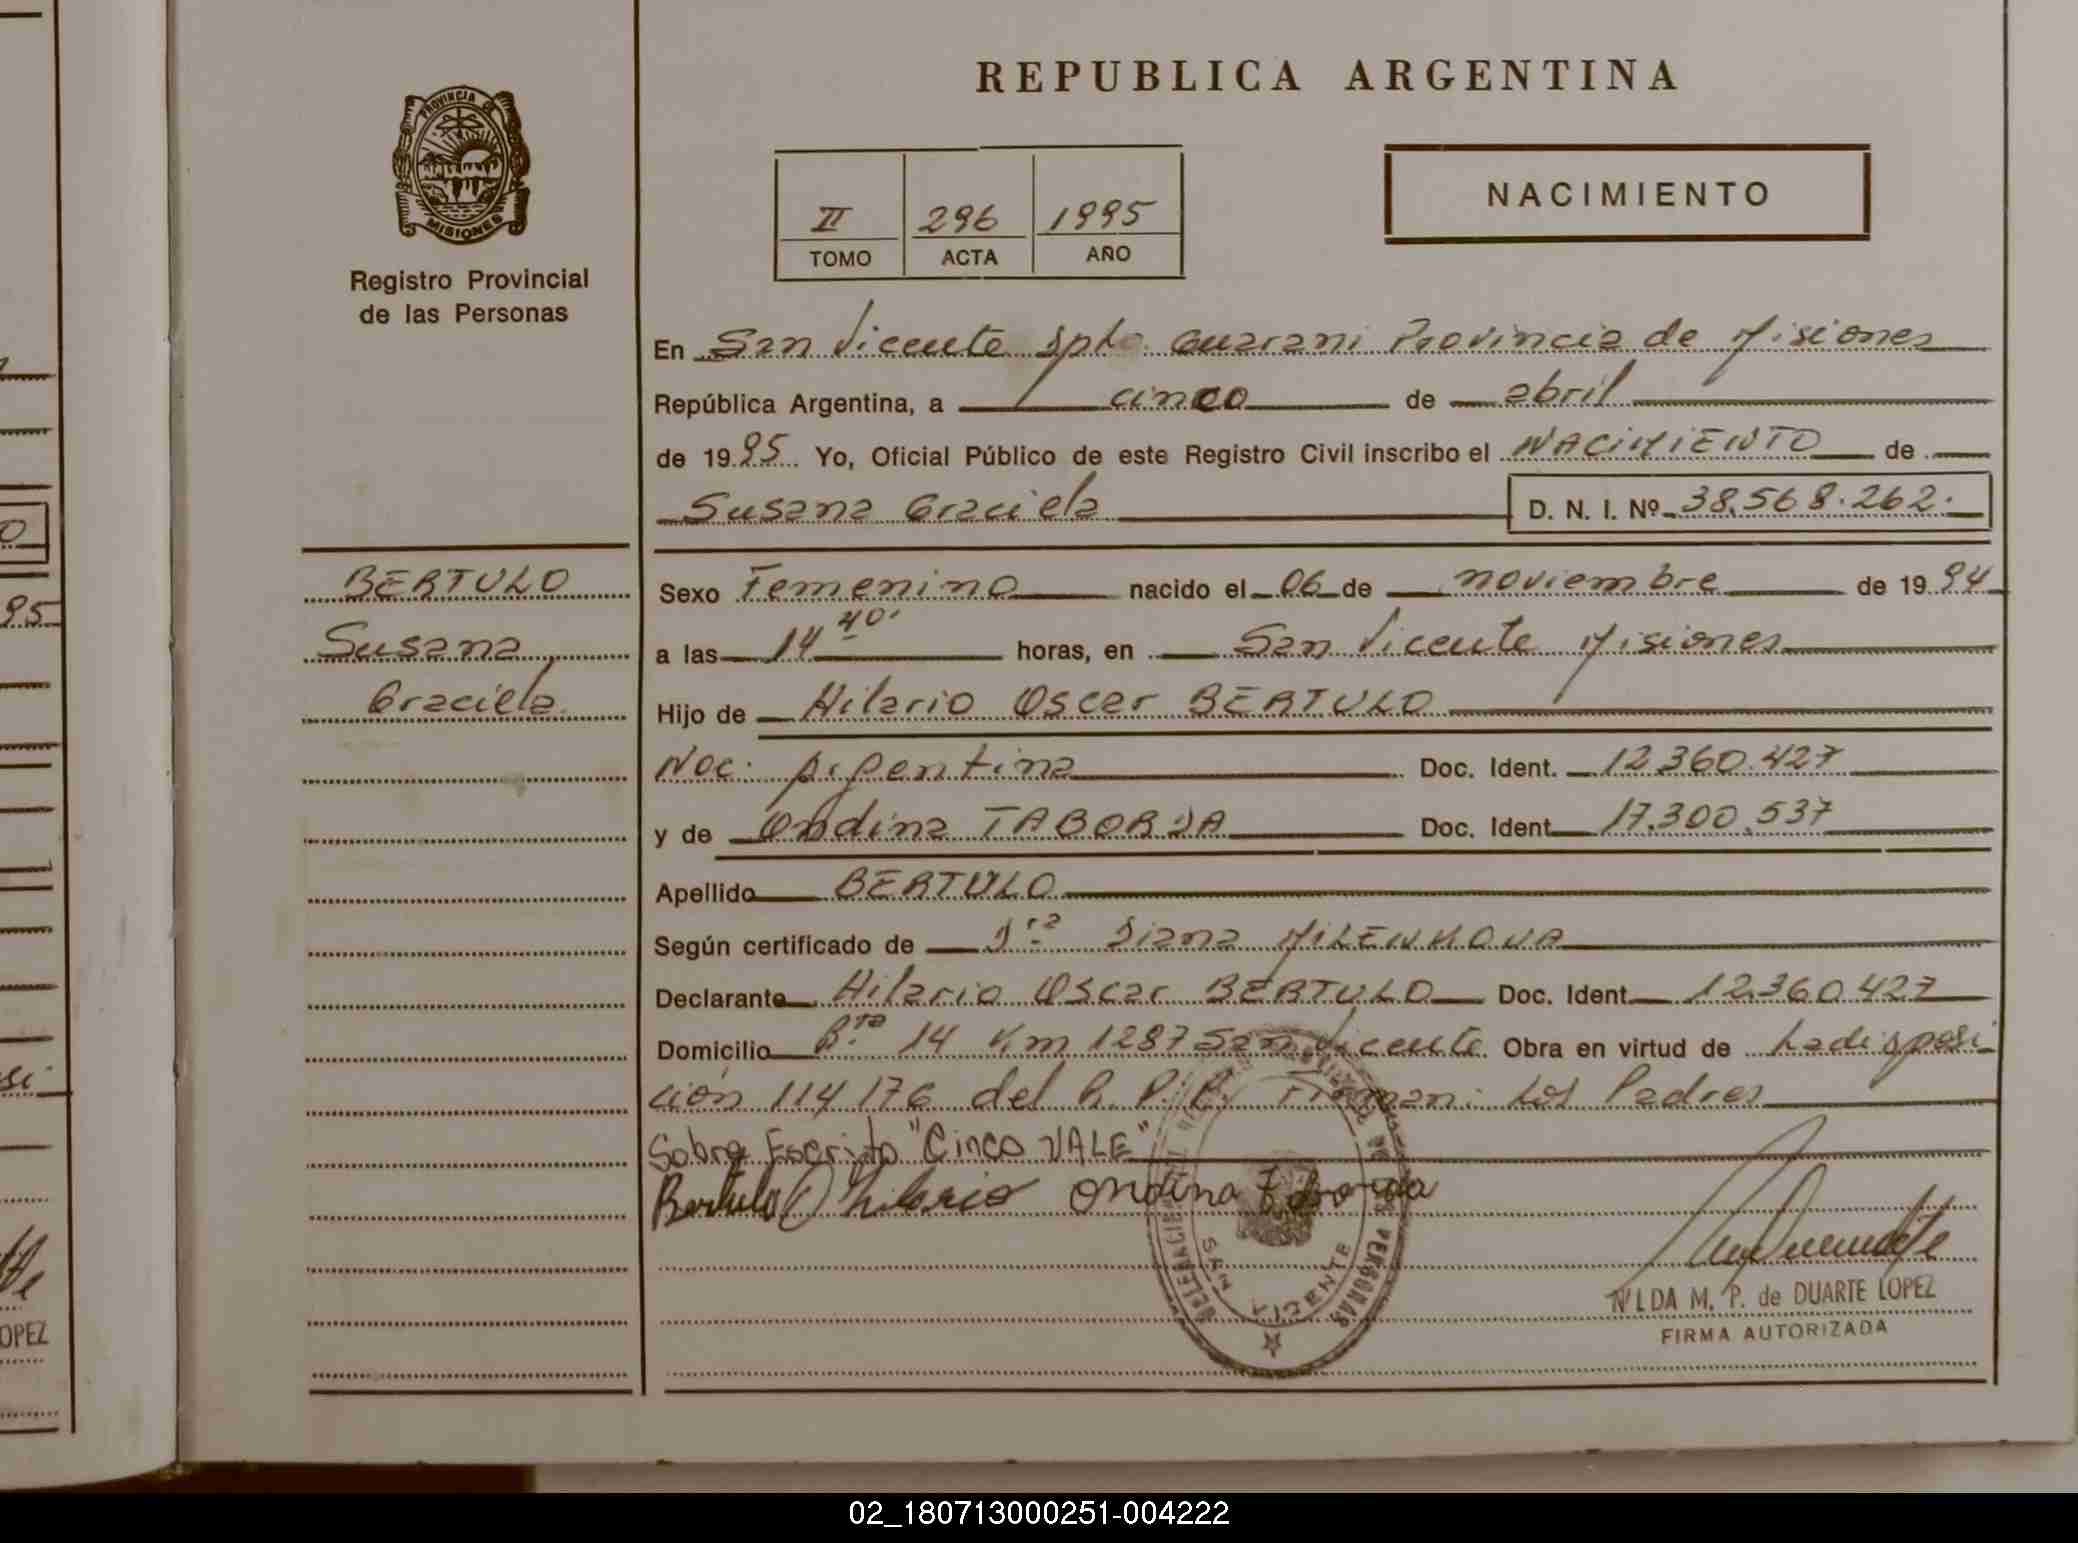 REPUBLICA ARGENTINA
PROVINCIA DE
MISIONES
Registro Provincial
de las Personas
II 296 1995
TOMO ACTA AÑO
NACIMIENTO
En San Vicente Dpto. Guarani Provincia de Misiones
República Argentina, a cinco de abril
de 1995 Yo, Oficial Público de este Registro Civil inscribo el NACIMIENTO de
Susana Graciela D. N. I. Nº 38.568.262.
BERTULO
Susana
Graciela
Sexo Femenino nacido el 06 de noviembre de 1994
a las 14 40' horas, en San Vicente Misiones
Hijo de Hilario Oscar BERTULO
Nac. Argentina Doc. Ident. 12.360.427
y de Ondina TABORDA Doc. Ident 17.300.537
Apellido BERTULO
Según certificado de Dra Diana MILENKOVA
Declarante Hilario Oscar BERTULO Doc. Ident 12.360.427
Domicilio Rta 14 Km 1287 San Vicente. Obra en virtud de La disposi
ción 114/76 del R. P. P. Firman: Los Padres
Sobre Escrito "Cinco VALE"
Bertulo O Hilario Ondina Taborda
SAN VICENTE
NILDA M. P. de DUARTE LOPEZ
FIRMA AUTORIZADA
95
OPEZ
02_180713000251-004222